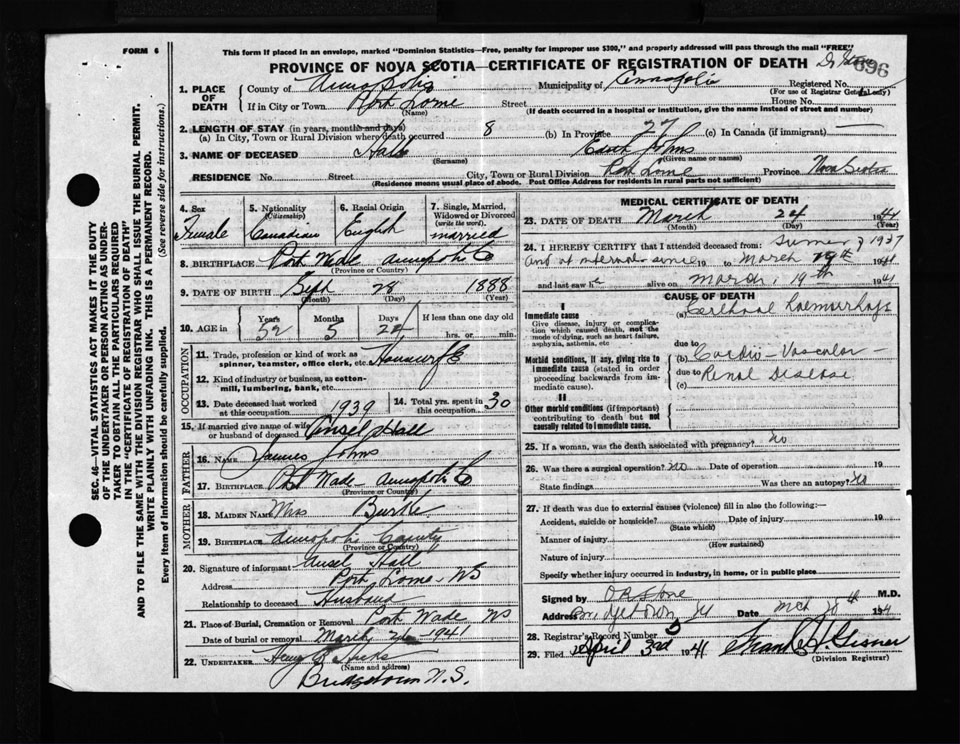 FORM 6
This form if placed in an envelope, marked "Dominion Statistics—Free, penalty for improper use $300," and properly addressed will pass through the mail "FREE"
PROVINCE OF NOVA SCOTIA—CERTIFICATE OF REGISTRATION OF DEATH
696
1. PLACE OF DEATH
County of Annapolis Municipality of Annapolis Registered No.
(For use of Registrar General only)
If in City or Town Port Lorne Street House No.
(Name) (If death occurred in a hospital or institution, give the name instead of street and number)
2. LENGTH OF STAY (in years, months and days)
(a) In City, Town or Rural Division where death occurred 8 (b) In Province 27 (c) In Canada (if immigrant) —
3. NAME OF DECEASED Hall Edith Johns
(Surname) (Given name or names)
RESIDENCE No. Street City, Town or Rural Division Port Lorne Province Nova Scotia
(Residence means usual place of abode. Post Office Address for residents in rural parts not sufficient)
4. Sex Female
5. Nationality (Citizenship) Canadian
6. Racial Origin English
7. Single, Married, Widowed or Divorced (write the word). married
8. BIRTHPLACE Port Wade Annapolis Co
(Province or Country)
9. DATE OF BIRTH Sept 28 1888
(Month) (Day) (Year)
10. AGE in Years 52 Months 5 Days 24 If less than one day old hrs. or min.
OCCUPATION
11. Trade, profession or kind of work as spinner, teamster, office clerk, etc. Housewife
12. Kind of industry or business, as cotton-mill, lumbering, bank, etc.
13. Date deceased last worked at this occupation 1939
14. Total yrs. spent in this occupation 30
15. If married give name of wife or husband of deceased Ansel Hall
FATHER
16. NAME James Johns
17. BIRTHPLACE Port Wade Annapolis Co
(Province or Country)
MOTHER
18. MAIDEN NAME Miss Burke
19. BIRTHPLACE Annapolis County
(Province or Country)
20. Signature of informant Ansel Hall
Address Port Lorne NS
Relationship to deceased Husband
21. Place of Burial, Cremation or Removal Port Wade, NS
Date of burial or removal March 1941
22. UNDERTAKER Hicks
(Name and address)
Bridgetown N.S.
MEDICAL CERTIFICATE OF DEATH
23. DATE OF DEATH March 24 1941
(Month) (Day) (Year)
24. I HEREBY CERTIFY that I attended deceased from: Summer of 1937
And at intervals since 19 to March 19th 1941
and last saw h alive on March, 19th 1941
CAUSE OF DEATH
I
Immediate cause
Give disease, injury or complication which caused death, not the mode of dying, such as heart failure, asphyxia, asthenia, etc
(a) Cerebral haemorrhage
due to
Morbid conditions, if any, giving rise to immediate cause (stated in order proceeding backwards from immediate cause).
(b) Cardio-Vascular—
due to Renal Disease
(c)
II
Other morbid conditions (if important) contributing to death but not causally related to immediate cause.
25. If a woman, was the death associated with pregnancy? No
26. Was there a surgical operation? No Date of operation 19
State findings Was there an autopsy? No
27. If death was due to external causes (violence) fill in also the following:—
Accident, suicide or homicide? Date of injury 19
(State which)
Manner of injury
(How sustained)
Nature of injury
Specify whether injury occurred in industry, in home, or in public place
Signed by M.D.
Address Bridgetown Date 194
28. Registrar's Record Number 5
29. Filed April 3rd 1941
(Division Registrar)
SEC. 46—VITAL STATISTICS ACT MAKES IT THE DUTY
OF THE UNDERTAKER OR PERSON ACTING AS UNDERTAKER TO OBTAIN ALL THE PARTICULARS REQUIRED
IN THE "CERTIFICATE OF REGISTRATION OF DEATH"
AND TO FILE THE SAME WITH THE DIVISION REGISTRAR WHO SHALL ISSUE THE BURIAL PERMIT.
WRITE PLAINLY WITH UNFADING INK. THIS IS A PERMANENT RECORD.
Every item of information should be carefully supplied. (See reverse side for instructions.)